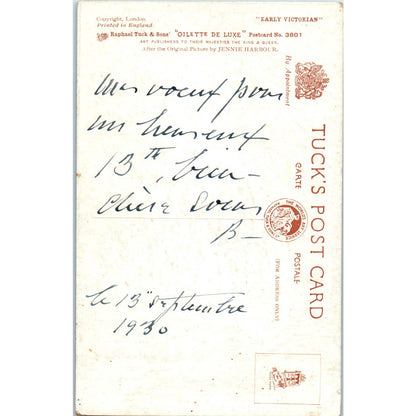 Copyright, London.
Printed in England
"EARLY VICTORIAN"
Raphael Tuck & Sons' "OILETTE DE LUXE" Postcard No. 3601
ART PUBLISHERS TO THEIR MAJESTIES THE KING & QUEEN.
After the Original Picture by JENNIE HARBOUR.
Mes voeux pour
un heureux
13th, bien-
chère
B-
le 13 septembre
1930
By Appointment
TUCK'S POST CARD
CARTE POSTALE
(FOR ADDRESS ONLY)